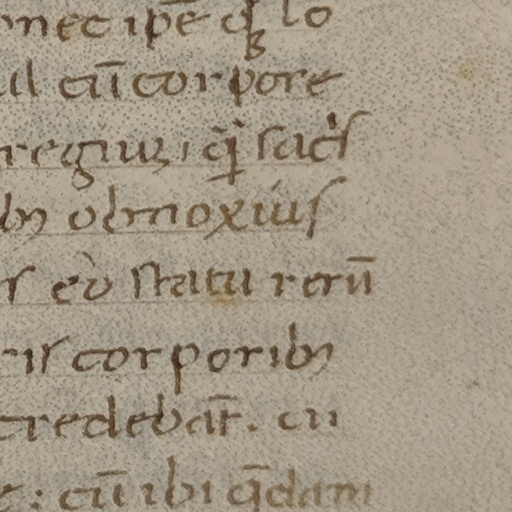 onec ipē q̄ lo
ul cū corpore
regiuȝ, q̄ sac̉s
bꝫ obnoxius
s eo statu rerū
ris corporibꝫ
credebat̄. cu
: cū ibi q̄dam